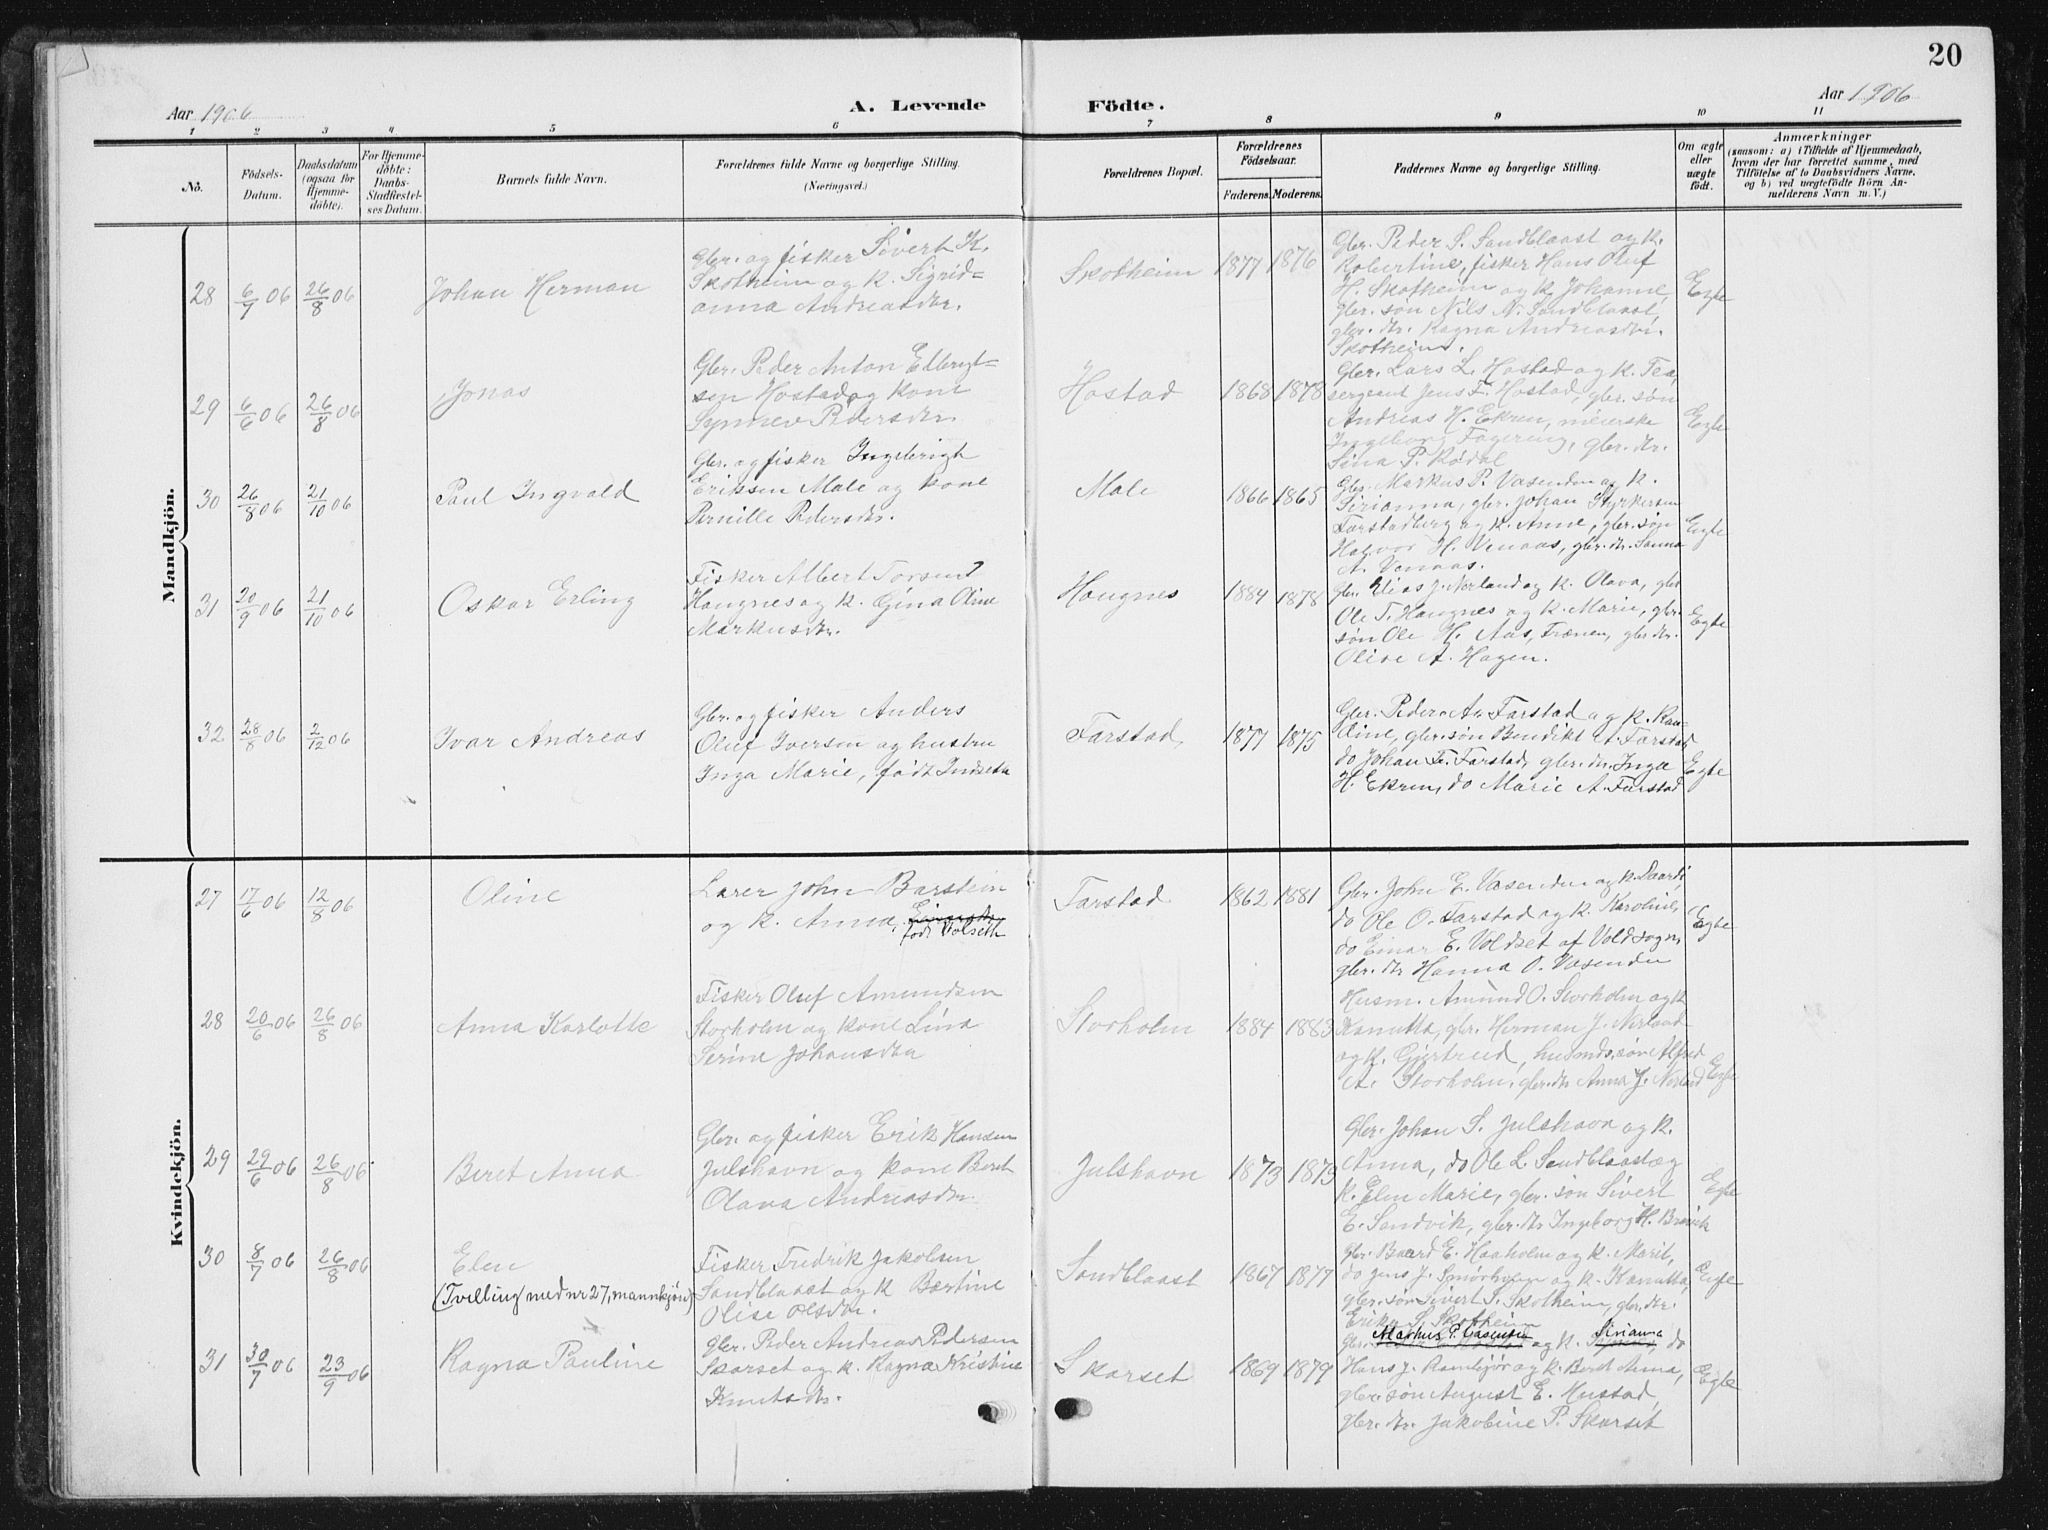 20
Aar 1906
A. Levende Födte.
Aar 1906
1 2 3 4 5 6 7 8 9 10 11
No.
Födsels-
Datum.
Daabsdatum
(ogsaa for
Hjemme-
döbte).
For Hjemme-
döbte:
Daabs-
Stadfæstel-
ses Datum.
Barnets fulde Navn.
Forældrenes fulde Navne og borgerlige Stilling.
(Næringsvei.)
Forældrenes Bopæl.
Forældrenes
Födselsaar.
Faderens. Moderens.
Faddernes Navne og borgerlige Stilling.
Om ægte
eller
uægte
födt.
Anmærkninger
(saasom: a) i Tilfælde af Hjemmedaab,
hvem der har forrettet samme, med
Tilföielse af to Daabsvidners Navne,
og b) ved uægtefödte Börn An-
melderens Navn m. V.)
Mandkjön.
28
6/7 06
26/8 06
Johan Herman
Gbr. og fisker Sivert K.
Skotheim og k. Sigrid-
anna Andreasdtr.
Skotheim
1877 1876
Gbr. Peder S. Sandblaast og k.
Robertine, fisker Hans Oluf
H. Skotheim og k. Johanne,
gbr. søn Nils N. Sandblaast,
gbr. dtr. Ragna Andreasdtr.
Skotheim.
Egte
29
6/6 06
26/8 06
Jonas
Gbr. Peder Anton Ellerigt-
sen Hostad og kone
Synnev Pedersdtr.
Hostad
1868 1878
Gbr. Lars L. Hostad og k. Tea,
sergeant Jens F. Hostad, gbr. søn
Andreas H. Ekren, meierske
Ingeborg Fagering, gbr. dtr.
Sina P. Rödal
Egte
30
26/8 06
21/10 06
Paul Ingvald
Gbr. og fisker Ingebrigt
Eriksen Male og kone
Pernille Pedersdtr.
Male
1866 1865
Gbr. Markus P. Vasenden og k.
Sirianna, gbr. Johan Styrkersen
Farstadberg og k. Anne, gbr. søn
Halvor H. Venaas, gbr. dtr. Sanna
A. Venaas.
Egte
31
20/9 06
21/10 06
Oskar Erling
Fisker Albert Torsen
Haugnes og k. Gina Oline
Markusdtr.
Haugnes
1884 1878
Gbr. Elias J. Nerland og k. Olava, gbr
Ole T. Haugnes og k. Marie, gbr.
søn Ole H. Aas, Frænen, gbr. dtr.
Olive A. Hagen.
Egte
32
28/8 06
2/12 06
Ivar Andreas
Gbr. og fisker Anders
Oluf Iversen og hustru
Inga Marie, født Indseth
Farstad,
1877 1875
Gbr. Peder A. Farstad og k. Ran-
dine, gbr. søn Bendikt A. Farstad,
do Johan F. Farstad, gbr. dtr. Inga
H. Ekren, do Marie A. Farstad
Egte
Kvindekjön.
27
17/6 06
12/8 06
Oline
Lærer John Barstein
og k. Anna,
født Volseth
Farstad
1862 1881
Gbr. John E. Vasenden og k. Baardi,
do Ole O. Farstad og k. Karoline,
do Einar E. Voldset af Voldsogn,
gbr. dtr Hanna O. Vasenden
Egte
28
20/6 06
26/8 06
Anna Karlotte
Fisker Oluf Amundsen
Storholm og kone Lina
Serine Johansdtr
Storholm
1884 1883
Husm. Amund O. Storholm og k
Kanutta, gbr. Herman J. Nerland
og k. Gjertrud, husmds. søn Alfred
A. Storholm, gbr. dtr Anna J. Nerland
Egte
29
29/6 06
26/8 06.
Beret Anna
Gbr. og fisker Erik Hansen
Julshavn og kone Beret
Olava Andreasdtr
Julshavn
1873 1879
Gbr. Johan S. Julshavn og k.
Anna, do Ole L. Sandblaast og
k. Elen Marie, gbr. søn Sivert
E. Sandvik, gbr. dtr Ingeborg H. Brevik
Egte
30
8/7 06
26/8 06
Elen
(Tvilling med nr 27, mannkjøn)
Fisker Fredrik Jakobsen
Sandblaast og k Bertine
Olise Olsdtr.
Sandblaast
1867 1877
Gbr. Baard E. Haaholm og k. Marit,
do Jens J. Smørholm og k. Kanutta,
gbr. søn Sivert S. Skotheim, gbr. dtr.
Erika S. Skotheim
Egte
31
30/7 06
23/9 06
Ragna Pauline
Gbr. Peder Andreas Pedersen
Skarset og k. Ragna Kristine
Knutsdtr.
Skarset
1869 1879
Markus P. Vasenden Sirianna
gbr. og k. do
Hans J. Ramskjør og k. Beret Anna,
gbr. søn August E. Hustad,
gbr. dtr. Jakobine P. Skarset
Egte